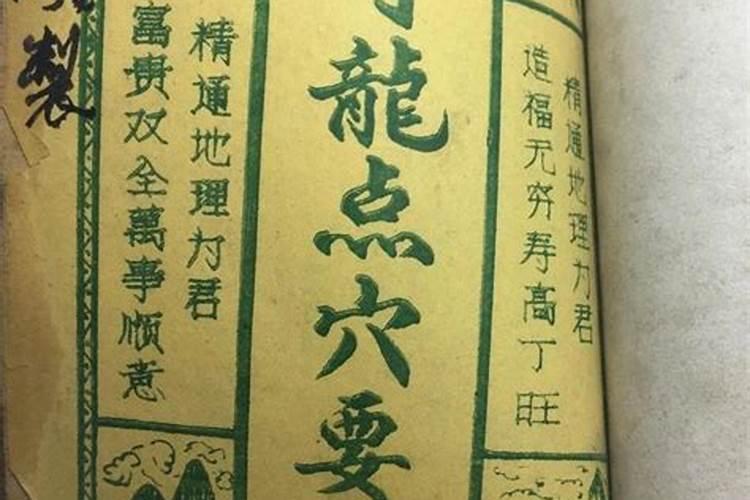 精通地理为君
造福无穷寿高丁旺
龍点穴要
精通地理为君
富贵双全萬事顺意
製